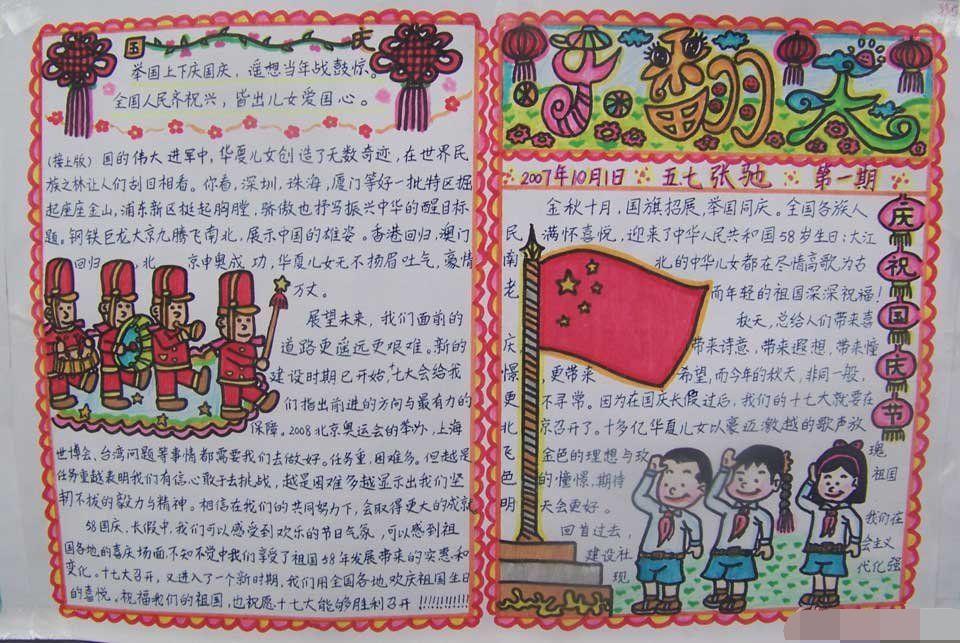 乐翻天
2007年10月1日 五.七张驰 第一期
庆祝国庆节
金秋十月，国旗招展，举国同庆。全国各族人
民满怀喜悦，迎来了中华人民共和国58岁生日：大江
南北的中华儿女都在尽情高歌，为古
老而年轻的祖国深深祝福！
秋天，总给人们带来喜
庆，带来诗意，带来遐想，带来憧
憬，更带来希望，而今年的秋天，非同一般，
更不寻常。因为在国庆长假过后，我们的十七大就要在
北京召开了。十多亿华夏儿女以豪迈激越的歌声放
飞金色的理想与玫瑰
色的憧憬，期待祖国
明天会更好。
回首过去，我们在
建设社会主义
现代化强
国庆
举国上下庆国庆，遥想当年战鼓惊。
全国人民齐祝兴，皆出儿女爱国心。
(接上版) 国的伟大进军中，华夏儿女创造了无数奇迹，在世界民
族之林让人们刮目相看。你看，深圳，珠海，厦门等好一批特区掘
起座座金山，浦东新区挺起胸膛，骄傲也抒写振兴中华的醒目标
题。钢铁巨龙大京九腾飞南北，展示中国的雄姿。香港回归，澳门
回归，北京申奥成功，华夏儿女无不扬眉吐气，豪情
万丈。
展望未来，我们面前的
道路更遥远更艰难。新的
建设时期已开始，十七大会给我
们指出前进的方向与最有力的
保障。2008北京奥运会的举办，上海
世博会、台湾问题等事情都需要我们去做好。任务重，困难多。但越是
任务重越表明我们有信心敢于去挑战，越是困难多越显示出我们坚
韧不拔的毅力与精神。相信在我们的共同努力下，会取得更大的成就
58国庆、长假中，我们可以感受到欢乐的节日气氛，可以感到祖
国各地的喜庆场面，不知不觉中我们享受了祖国58年发展带来的实惠和
变化。十七大召开，又进入了一个新时期，我们用全国各地欢庆祖国生日
的喜悦。祝福我们的祖国，也祝愿十七大能够胜利召开！！！！！！！！！！